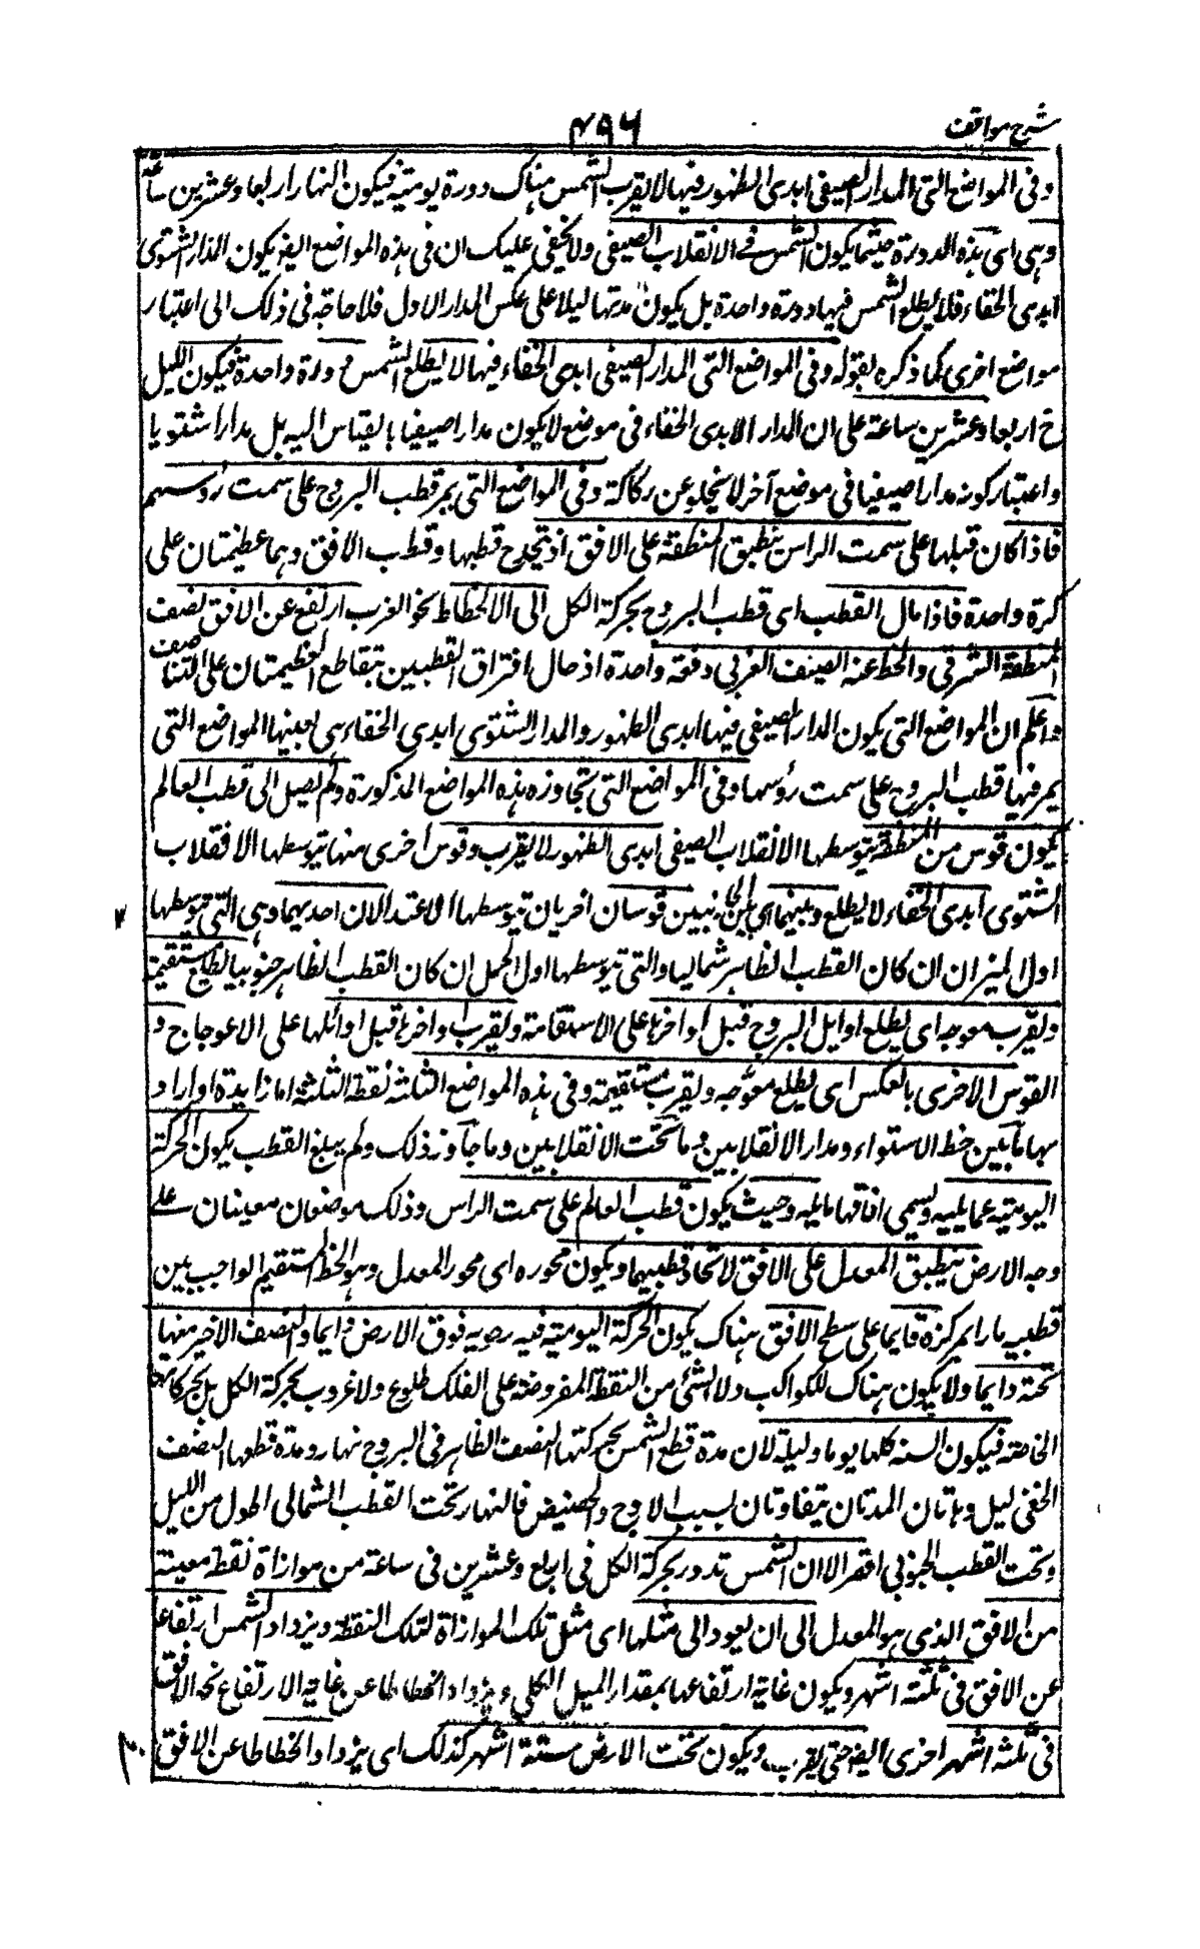 شرح مواقف
۴۹۶
وفى المواضع التى المدار الصيفى ابدى الظهور فيها لا يغرب الشمس هناك دورة يومية فيكون النهار اربعا وعشرين ساعة
وهى اى هذه الدورة حيثما يكون الشمس فے الانقلاب الصيفى ولا يخفى عليك ان فى هذه المواضع ايضا يكون المدار الشتوى
ابدى الخفاء فلا يطلع الشمس فيها دورة واحدة بل يكون مدتها ليلا على عكس المدار الاول فلا حاجة فى ذلك الى اعتبار
مواضع اخرى كما ذكره بقوله وفى المواضع التى المدار الصيفى ابدى الخفاء فيها لا يطلع الشمس دورة واحدة فيكون الليل
ح اربعا وعشرين ساعة على ان المدار الابدى الخفاء فى موضع لا يكون مدارا صيفيا بالقياس اليه بل مدارا شتويا
واعتبار كونه مدارا صيفيا فى موضع آخر لا يخلو عن ركاكة وفى المواضع التى يمر قطب البروج على سمت رؤسهم
فاذا كان قبلها على سمت الراس ينطبق المنطقة على الافق اذ يتحد ح قطبها وقطب الافق وهما عظيمتان على
كرة واحدة فاذا مال القطب اى قطب البروج بحركة الكل الى الانحطاط نحو الغرب ارتفع عن الافق نصف
المنطقة الشرقى وانحط عنه النصف الغربى دفعة واحدة اذ حال افتراق القطبين يتقاطع العظيمتان على التناصف
واعلم ان المواضع التى يكون المدار الصيفى فيها ابدى الظهور والمدار الشتوى ابدى الخفاء هى بعينها المواضع التى
يمر فيها قطب البروج على سمت رؤسها وفى المواضع التى تجاوزه هذه المواضع المذكورة ولم يصل الى قطب العالم
يكون قوس من المنطقة يتوسطها الانقلاب الصيفى ابدى الظهور لا يغرب وقوس اخرى منها يتوسطها الانقلاب
الشتوى ابدى الخفاء لا يطلع وبينهما اى بين الجانبين قوسان اخريان يتوسطهما الاعتدالان احديهما وهى التى يتوسطها
اول الميزان ان كان القطب الظاهر شماليا والتى يتوسطها اول الحمل ان كان القطب الظاهر جنوبيا يطلع مستقيمة
ويغرب معوجة اى يطلع اوايل البروج قبل اواخرها على الاستقامة ويغرب اواخرها قبل اوائلها على الاعوجاج و
القوس الاخرى بالعكس اى يطلع معوجة ويغرب مستقيمة وفى هذه المواضع الثلثة نقطة الثلثة اما زايدة او اراد
بها ما بين خط الاستواء ومدار الانقلابين وما تحت الانقلابين وما جاوز ذلك ولم يبلغ القطب يكون الحركة
اليومية حمايلية ويسمى افاقها مايلة وحيث يكون قطب العالم على سمت الراس وذلك موضعان معينان علے
وجه الارض ينطبق المعدل على الافق لاتحاد قطبيهما ويكون محوره اى محور المعدل وهو الخط المستقيم الواجب بين
قطبيه مارا بمركزه قايما على سطح الافق هناك يكون الحركة اليومية فيه رحوية فوق الارض دايما والنصف الاخير منها
تحته دايما ولا يكون هناك للكواكب ولا لشئ من النقطة المفروضة على الفلك طلوع ولا غروب بحركة الكل بل بحركاتها
الخاصة فيكون السنة كلها يوما وليلة لان مدة قطع الشمس بحركتها النصف الظاهر فى البروج نهار ومدة قطعها النصف
الخفى ليل وهاتان المدتان يتفاوتان بسبب الاوج والحضيض فالنهار تحت القطب الشمالى اطول من الليل
وتحت القطب الجنوبى اقصر الا ان الشمس تدور بحركة الكل فى اربع وعشرين فى ساعة من موازاة نقطة معينة
من الافق الذى هو المعدل الى ان يعود الى مثلها اى مثل تلك الموازاة لتلك النقطة ويزداد الشمس ارتفاعا
عن الافق فى ثلثة اشهر ويكون غاية ارتفاعها بمقدار الميل الكلى ويزداد انحطاطا عن غاية الارتفاع نحو الافق
فى ثلثة اشهر اخرى ايضا حتى يغرب ويكون تحت الارض ستة اشهر كذلك اى يزداد انحطاطا عن الافق